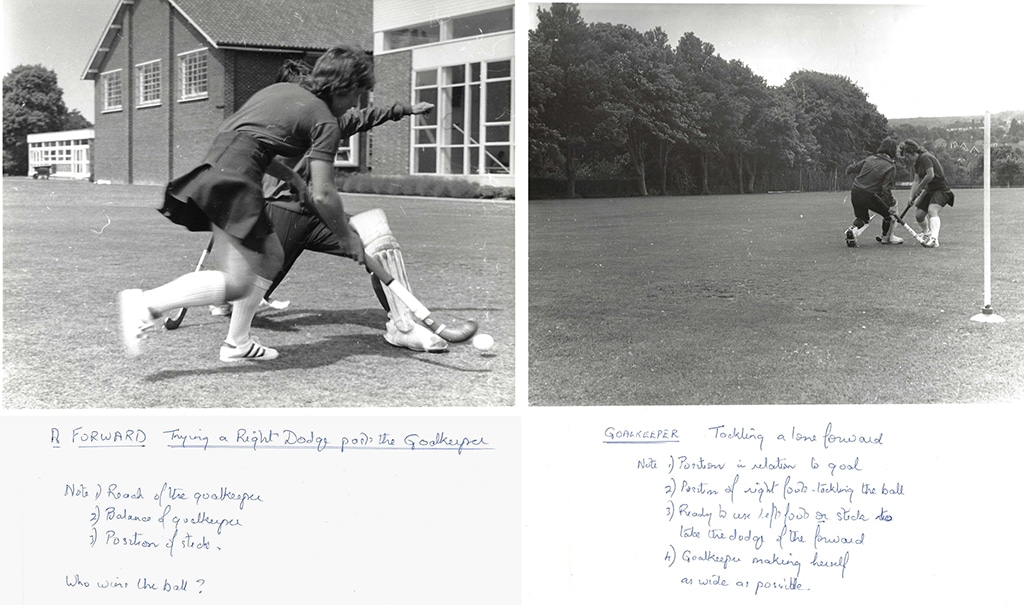 A FORWARD Trying a Right Dodge past the Goalkeeper
Note 1) Reach of the goalkeeper
2) Balance of goalkeeper
3) Position of stick.
Who wins the ball?
GOALKEEPER Tackling a lone forward
Note 1) Position in relation to goal
2) Position of right foot - tackling the ball
3) Ready to use left foot or stick to
take the dodge of the forward
4) Goalkeeper making herself
as wide as possible.